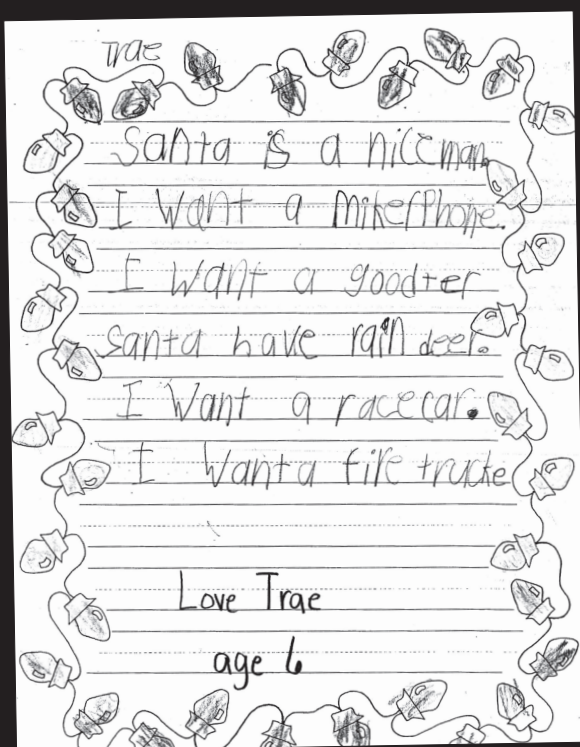 Trae
Santa is a nice man.
I want a mikerphone.
I want a goodter
santa have rain deer.
I want a racecar.
I want a fire trucke
Love Trae
age 6